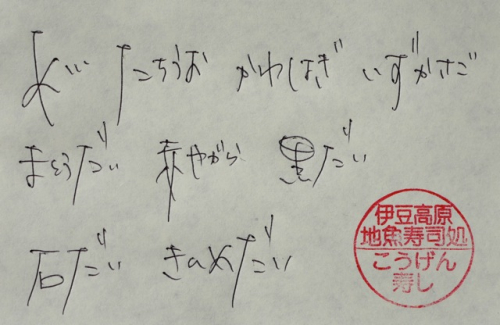 あじ たちうお かわはぎ いずかさご
まとうだい 赤やがら 黒だい
石だい きんめだい
伊豆高原
地魚寿司処
こうげん
寿し